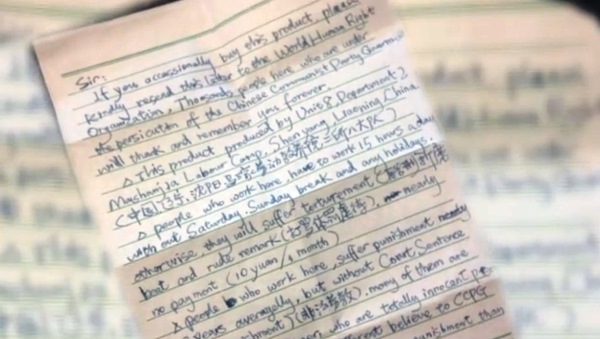 Sir:
If you occassionally buy this product, please
kindly resend this letter to the World Human Right
Organization. Thousands people here who are under
the persicution of the Chinese Communist Party Government
will thank and remember you forever.
△ This product produced by Unit 8, Department 2,
Mashanjia Labour Camp, Shenyang, Liaoning, China
(中国, 辽宁, 沈阳, 马三家劳动教养院二所八大队)
△ people who work here, have to work 15 hours a day
with out Saturday, Sunday break and any holidays,
otherwise, they will suffer torturement
beat and rude remark nearly
no payment (10 yuan / 1 month)
△ people who work here, suffer punishment nearly
years averagely, but without Court Sentence
(非法劳教). many of them are
who are totally innocent
believe to CCPG
punishment than